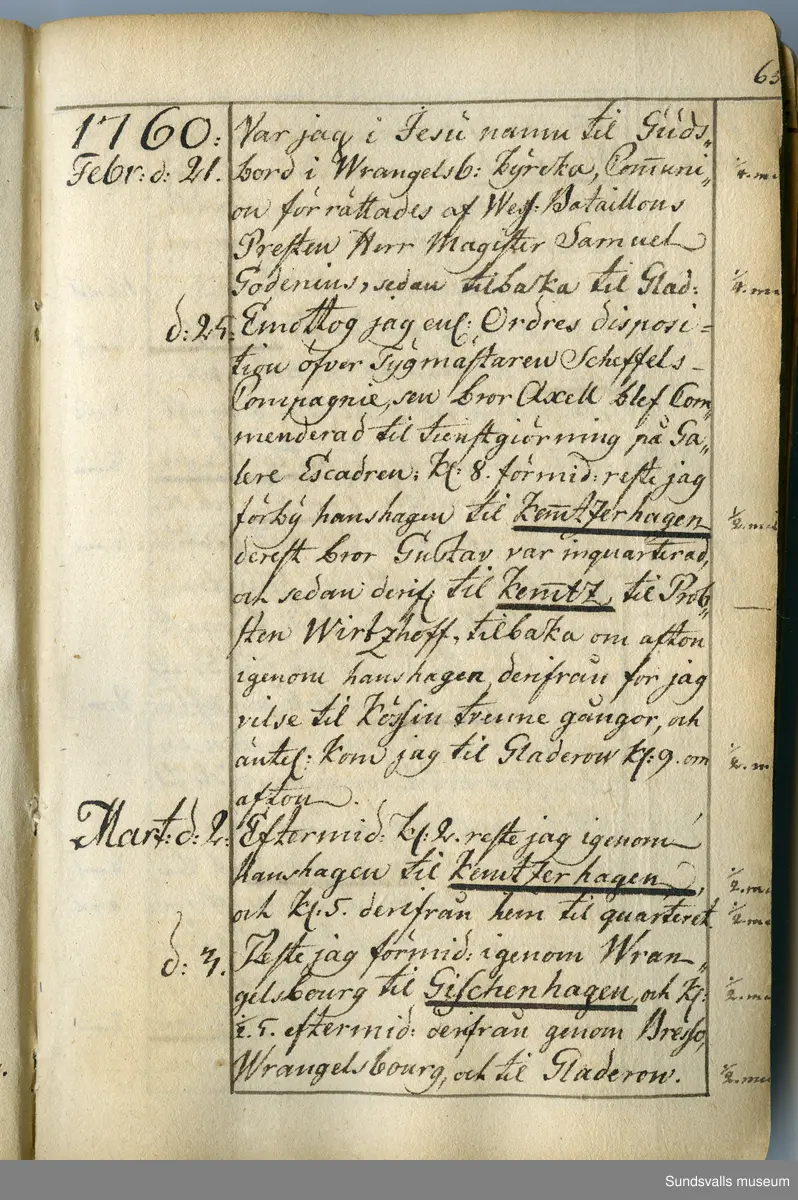 63
1760:
Febr: d: 21.
Var jag i Jesu namn til Guds„
bord i Wrangelsb: Kyrcka, Com̅uni„
on förrättades af Wesf: Bataillons
Presten Herr Magister Samuel
Godenius, sedan tilbaka til Glad:
d: 25:
Emottog jag enl: Ordres disposi=
tion öfver Tygmästaren Scheffels
Compagnie, sen bror Axell blef Com„
menderad til tienstgiörning på Ga„
lere Escadren; Kl: 8. förmid: reste jag
förby hanshagen til Kem̅tzerhagen
derest bror Gustav var inquarterad,
och sedan derif: til Kem̅tz, til Prob„
sten Wirtzhoff, tilbaka om afton
igenom hanshagen, derifrån for jag
vilse til Kössin trenne gångor, och
äntel: kom jag til Gladerow kl: 9. om
afton.
Mart: d: 2:
Eftermid: Kl: 2. reste jag igenom
hanshagen til Kemtzerhagen,
och Kl: 5. derifrån hem til quarteret.
d: 3.
Reste jag förmid: igenom Wran„
gelsbourg til Gischenhagen, och Kl:
½. 5. eftermid: derifrån genom Bresso,
Wrangelsbourg, och til Gladerow.
½. m
½. m
½. m
½. m
½. m
½. m
½. m
½. m
Sundsvalls museum